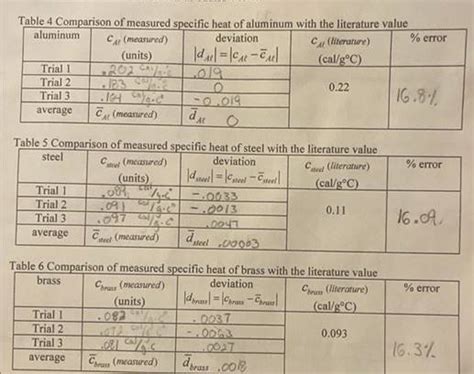 Table 4 Comparison of measured specific heat of aluminum with the literature value
aluminum c_Al (measured) (units) deviation |d_Al|=|c_Al − c̄_Al| c_Al (literature) (cal/g°C) % error
Trial 1 .202 cal/g·c° .019
Trial 2 .183 cal/g·c° 0 0.22 16.8%
Trial 3 .164 cal/g·c° -0.019
average c̄_Al (measured) d̄_Al 0
Table 5 Comparison of measured specific heat of steel with the literature value
steel c_steel (measured) (units) deviation |d_steel|=|c_steel − c̄_steel| c_steel (literature) (cal/g°C) % error
Trial 1 .089 cal/g·c° -.0033
Trial 2 .091 cal/g·c° -.0013 0.11 16.09
Trial 3 .097 cal/g·c° .0047
average c̄_steel (measured) d̄_steel .00003
Table 6 Comparison of measured specific heat of brass with the literature value
brass c_brass (measured) (units) deviation |d_brass|=|c_brass − c̄_brass| c_brass (literature) (cal/g°C) % error
Trial 1 .082 cal/g·c° .0037
Trial 2 .072 cal/g·c° -.0063 0.093 16.3%
Trial 3 .081 cal/g·c° .0027
average c̄_brass (measured) d̄_brass